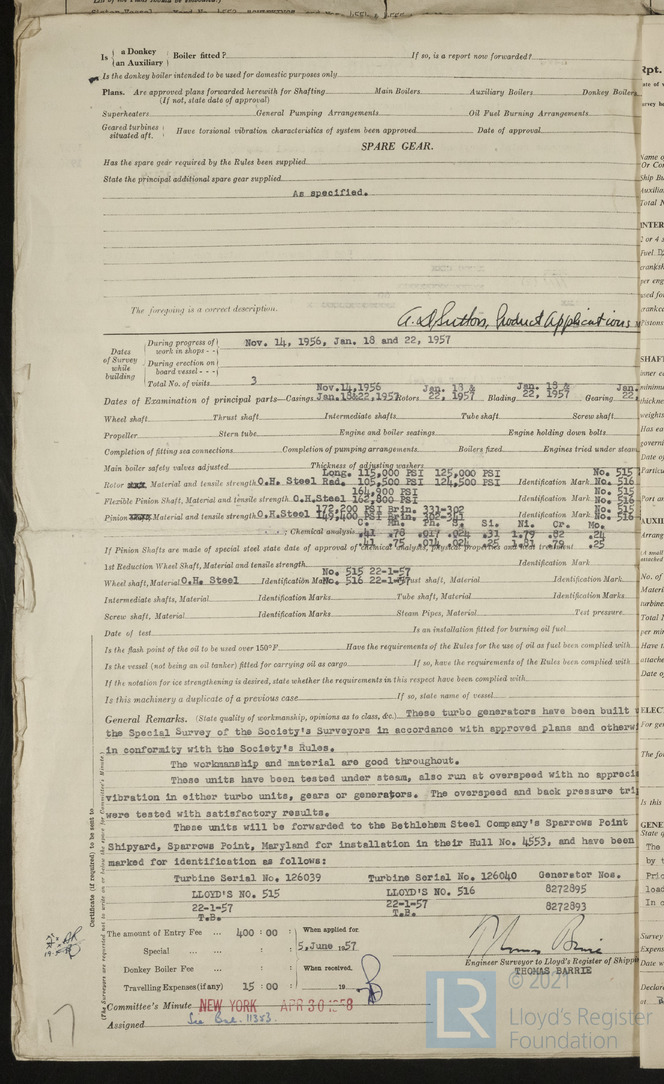 Is { a Donkey / an Auxiliary } Boiler fitted? If so, is a report now forwarded?
Is the donkey boiler intended to be used for domestic purposes only
Plans. Are approved plans forwarded herewith for Shafting Main Boilers Auxiliary Boilers Donkey Boilers
(If not, state date of approval)
Superheaters General Pumping Arrangements Oil Fuel Burning Arrangements
Geared turbines situated aft. } Have torsional vibration characteristics of system been approved Date of approval
SPARE GEAR.
Has the spare gear required by the Rules been supplied
State the principal additional spare gear supplied
As specified.
The foregoing is a correct description.
Product Applications
Dates of Survey while building
During progress of work in shops - - Nov. 14, 1956, Jan. 18 and 22, 1957
During erection on board vessel - - -
Total No. of visits 3
Nov.14,1956 Jan. 18 & Jan. 18 & Jan.
Dates of Examination of principal parts—Casings Jan.18&22,1957 Rotors 22, 1957 Blading 22, 1957 Gearing 22
Wheel shaft Thrust shaft Intermediate shafts Tube shaft Screw shaft
Propeller Stern tube Engine and boiler seatings Engine holding down bolts
Completion of fitting sea connections Completion of pumping arrangements Boilers fixed Engines tried under steam
Main boiler safety valves adjusted Thickness of adjusting washers
Long. 115,000 PSI 125,000 PSI No. 515
Rotor Material and tensile strength O.H. Steel Rad. 105,500 PSI 124,500 PSI Identification Mark No. 516
164,900 PSI No. 515
Flexible Pinion Shaft, Material and tensile strength O.H.Steel 162,800 PSI Identification Mark No. 516
172,200 PSI Brin. 331-302 No. 515
Pinion Material and tensile strength O.H.Steel 149,400 PSI Brin. 302-341 Identification Mark No. 516
C. Mn. Ph. S. Si. Ni. Cr. Mo.
Chemical analysis .41 .78 .017 .024 .31 1.79 .82 .24
.41 .75 .014 .024 .25 1.81 .79 .25
If Pinion Shafts are made of special steel state date of approval of chemical analysis, physical properties and heat treatment
1st Reduction Wheel Shaft, Material and tensile strength Identification Mark
No. 515 22-1-57
Wheel shaft, Material O.H. Steel Identification Mark No. 516 22-1-57 Thrust shaft, Material Identification Mark
Intermediate shafts, Material Identification Marks Tube shaft, Material Identification Marks
Screw shaft, Material Identification Marks Steam Pipes, Material Test pressure
Date of test Is an installation fitted for burning oil fuel
Is the flash point of the oil to be used over 150°F Have the requirements of the Rules for the use of oil as fuel been complied with
Is the vessel (not being an oil tanker) fitted for carrying oil as cargo If so, have the requirements of the Rules been complied with
If the notation for ice strengthening is desired, state whether the requirements in this respect have been complied with
Is this machinery a duplicate of a previous case If so, state name of vessel
General Remarks. (State quality of workmanship, opinions as to class, &c.) These turbo generators have been built
the Special Survey of the Society's Surveyors in accordance with approved plans and otherw
in conformity with the Society's Rules.
The workmanship and material are good throughout.
These units have been tested under steam, also run at overspeed with no apprecia
vibration in either turbo units, gears or generators. The overspeed and back pressure tri
were tested with satisfactory results.
These units will be forwarded to the Bethlehem Steel Company's Sparrows Point
Shipyard, Sparrows Point, Maryland for installation in their Hull No. 4553, and have been
marked for identification as follows:
Turbine Serial No. 126039 Turbine Serial No. 126040 Generator Nos.
LLOYD'S NO. 515 LLOYD'S NO. 516 8272895
22-1-57 22-1-57 8272893
T.B. T.B.
The amount of Entry Fee ... 400 : 00 : When applied for
Special ... : : 5 June 1957
Donkey Boiler Fee ... : : When received,
Travelling Expenses (if any) 15 : 00 : 19
Engineer Surveyor to Lloyd's Register of Shipp
THOMAS BARRIE
Committee's Minute NEW YORK APR 30 1958
Assigned See Bal. 11353.
Certificate (if required) to be sent to
(The Surveyors are requested not to write on or below the space for Committee's Minute.)
17
© 2021
LR
Lloyd's Register
Foundation